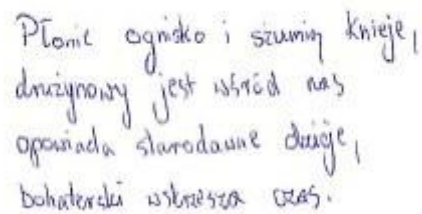 Płonie ognisko i szumią knieje,
drużynowy jest wśród nas
opowiada starodawne dzieje,
bohaterski wskrzesza czas.